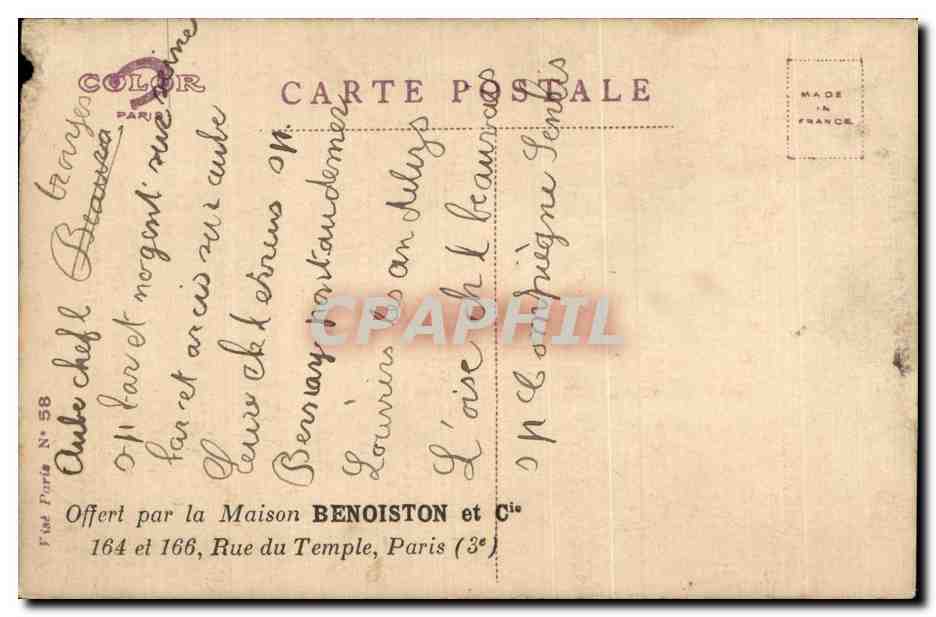 COLOR
PARIS
CARTE POSTALE
MADE
IN
FRANCE
Visé Paris N° 58
Aube chef l Beauvea troiyes
sp bar et nogent sur seine
bar et arcis sur aube
l'eure ch l evreus sp.
Bernay pontaudemer
Louviers les andelys
L'oise ch l beauvais
sp Compiègne Senlis
CPAPHIL
Offert par la Maison BENOISTON et Cie
164 et 166, Rue du Temple, Paris (3e)